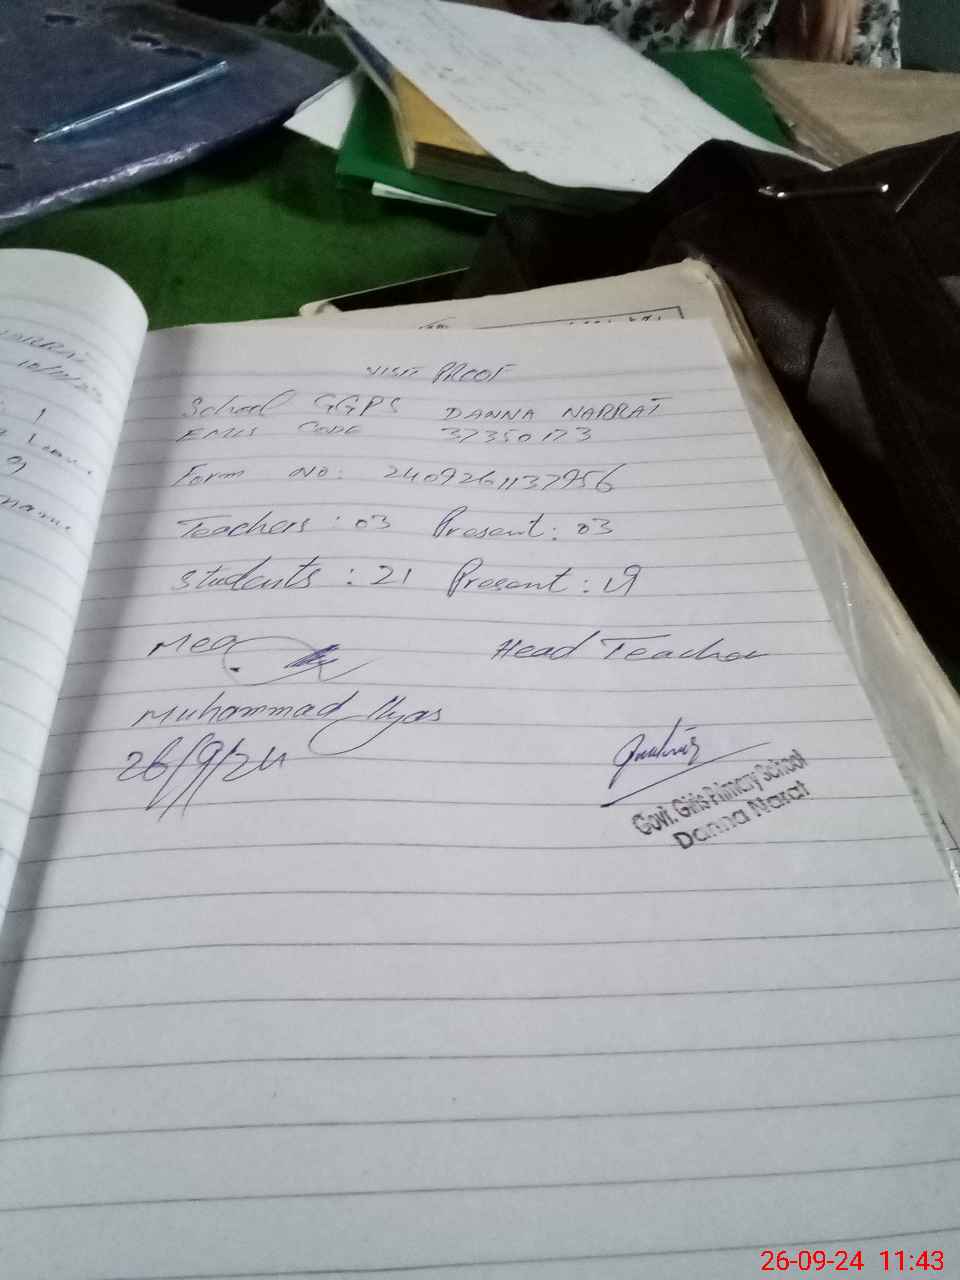 VISIT PROOF
School GGPS DANNA NARRAT
EMIS CODE 37350173
Form No: 2409261137956
Teachers : 03 Present : 03
Students : 21 Present : 19
Mea Head Teacher
Muhammad Ilyas
26/9/24
Govt. Girls Primary School
Danna Narat
26-09-24 11:43